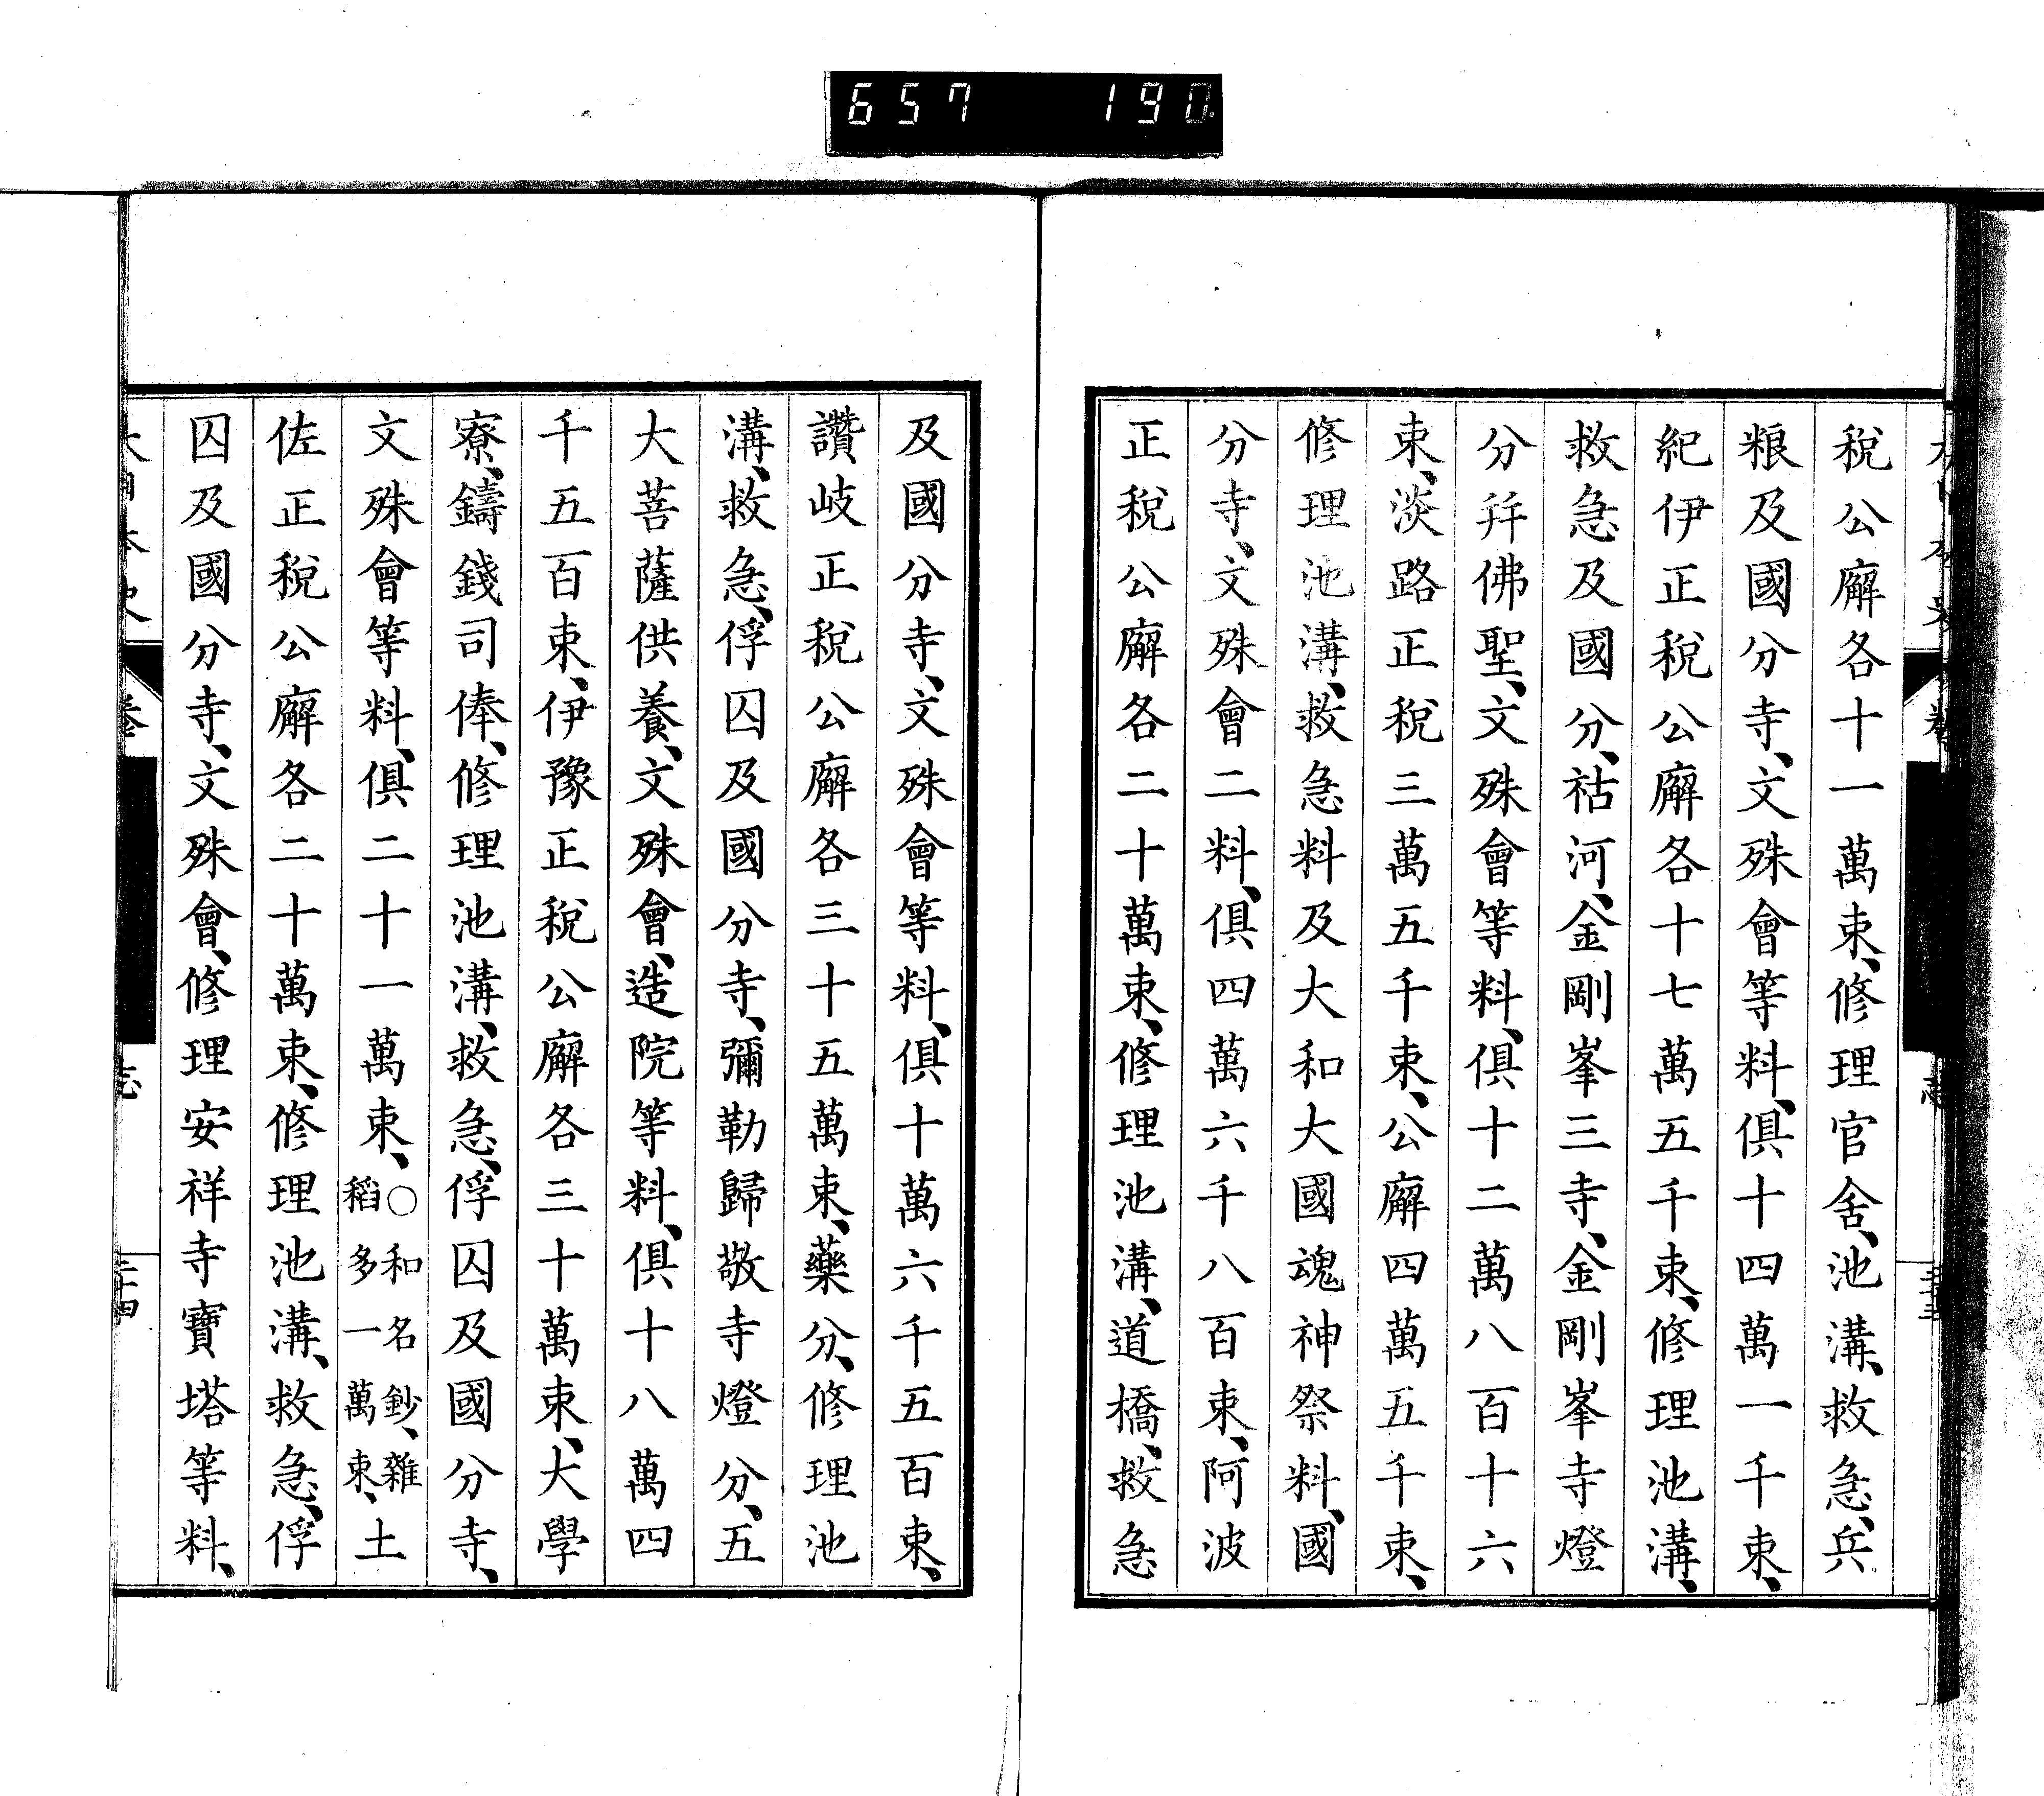 657 190
稅公廨各十一萬束、修理官舍、池溝、救急、兵
粮及國分寺、文殊會等料、俱十四萬一千束、
紀伊正稅公廨各十七萬五千束、修理池溝、
救急及國分、祜河、金剛峯三寺、金剛峯寺燈
分幷佛聖、文殊會等料、俱十二萬八百十六
束、淡路正稅三萬五千束、公廨四萬五千束、
修理池溝、救急料及大和大國魂神祭料、國
分寺、文殊會二料、俱四萬六千八百束、阿波
正稅公廨各二十萬束、修理池溝、道橋、救急
及國分寺、文殊會等料、俱十萬六千五百束、
讚岐正稅公廨各三十五萬束、藥分、修理池
溝、救急、俘囚及國分寺、彌勒歸敬寺燈分、五
大菩薩供養、文殊會、造院等料、俱十八萬四
千五百束、伊豫正稅公廨各三十萬束、大學
寮、鑄錢司俸、修理池溝、救急、俘囚及國分寺、
文殊會等料、俱二十一萬束、○和名鈔、雜稻多一萬束、土
佐正稅公廨各二十萬束、修理池溝、救急、俘
囚及國分寺、文殊會、修理安祥寺寶塔等料、
大日本史 卷 志 三十四